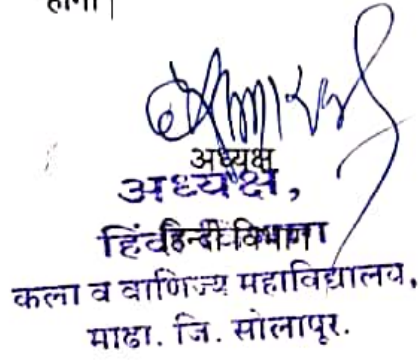 होगा|
अध्यक्ष
अध्यक्ष,
हिन्दी विभाग
कला व वाणिज्य महाविद्यालय,
माढा. जि. सोलापूर.